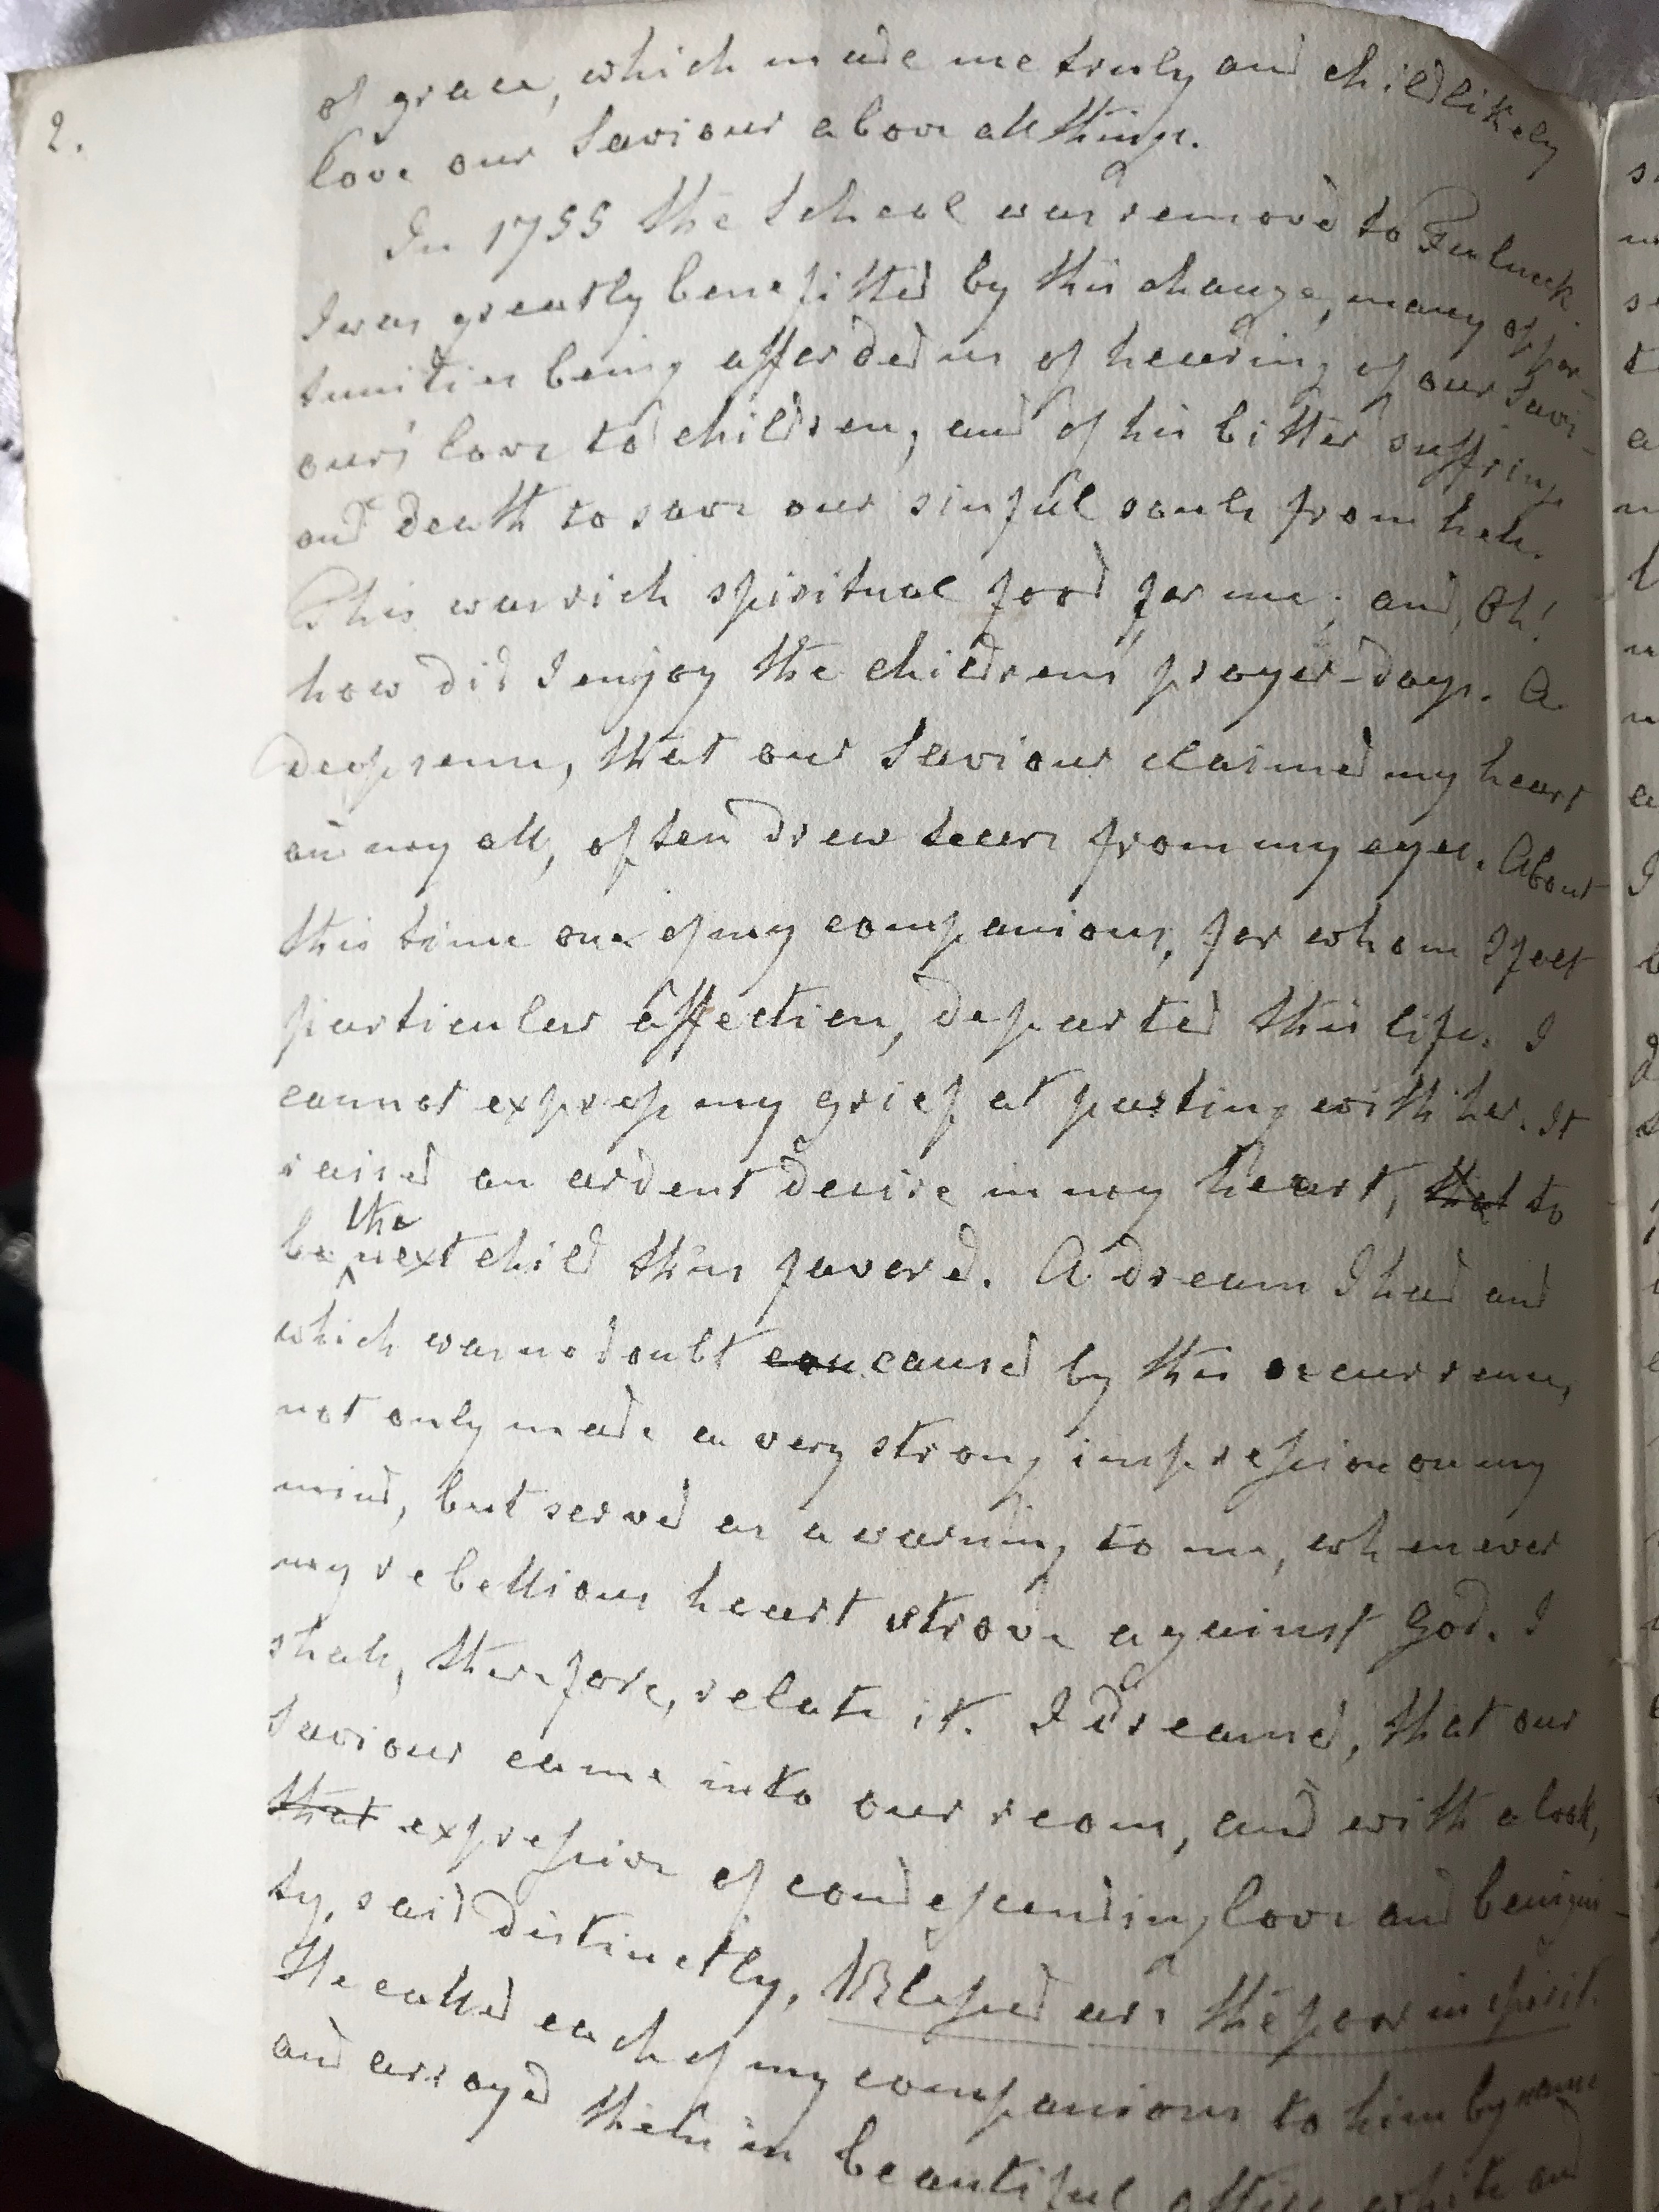 2.
of grace, which made me truly and childlikely
love our Saviour above all things.
In 1755 the School was remov'd to Fulneck.
I was greatly benefitted by this change, many oppor-
tunities being afforded us of hearing of our Savi-
our's love to children, and of his bitter suffrings
and death to save our sinful souls from hell.
This was rich spiritual food for me; and, Oh!
how did I enjoy the childrens' prayer-days. A
deep sense, that our Saviour claimed my heart
and my all, often drew tears from my eyes. About
this time one of my companions, for whom I felt
particular affection, departed this life. I
cannot express my grief at parting with her. It
raised an ardent desire in my heart, that to
be the next child thus favored. A dream I had and
which was no doubt caused by this occurrence,
not only made a very strong impression on my
mind, but served as a warning to me, whenever
my rebellious heart strove against God. I
shall, therefore, relate it. I dreamed, that our
Saviour came into our room, and with a look,
that expressive of condescending love and benigni-
ty, said distinctly, Blessed are the poor in spirit.
He called each of my companions to him by name
and arrayed them in beautiful attire white and